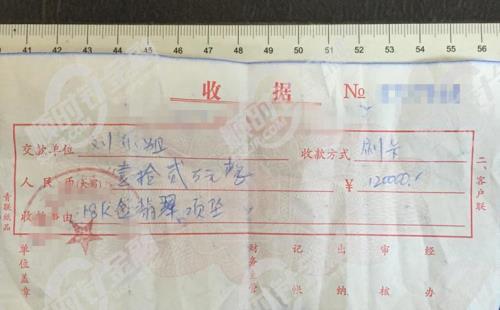 41 42 43 44 45 46 47 48 49 50 51 52 53 54 55 56
收 据 №
交款单位 刘小姐 收款方式 刷卡
人民币(大写) 壹拾贰万元整 ¥ 120000.
收 事由 18K金翡翠项坠
二、客户联
青联纸品
单位盖章 财务主管 记帐 出纳 审核 经办